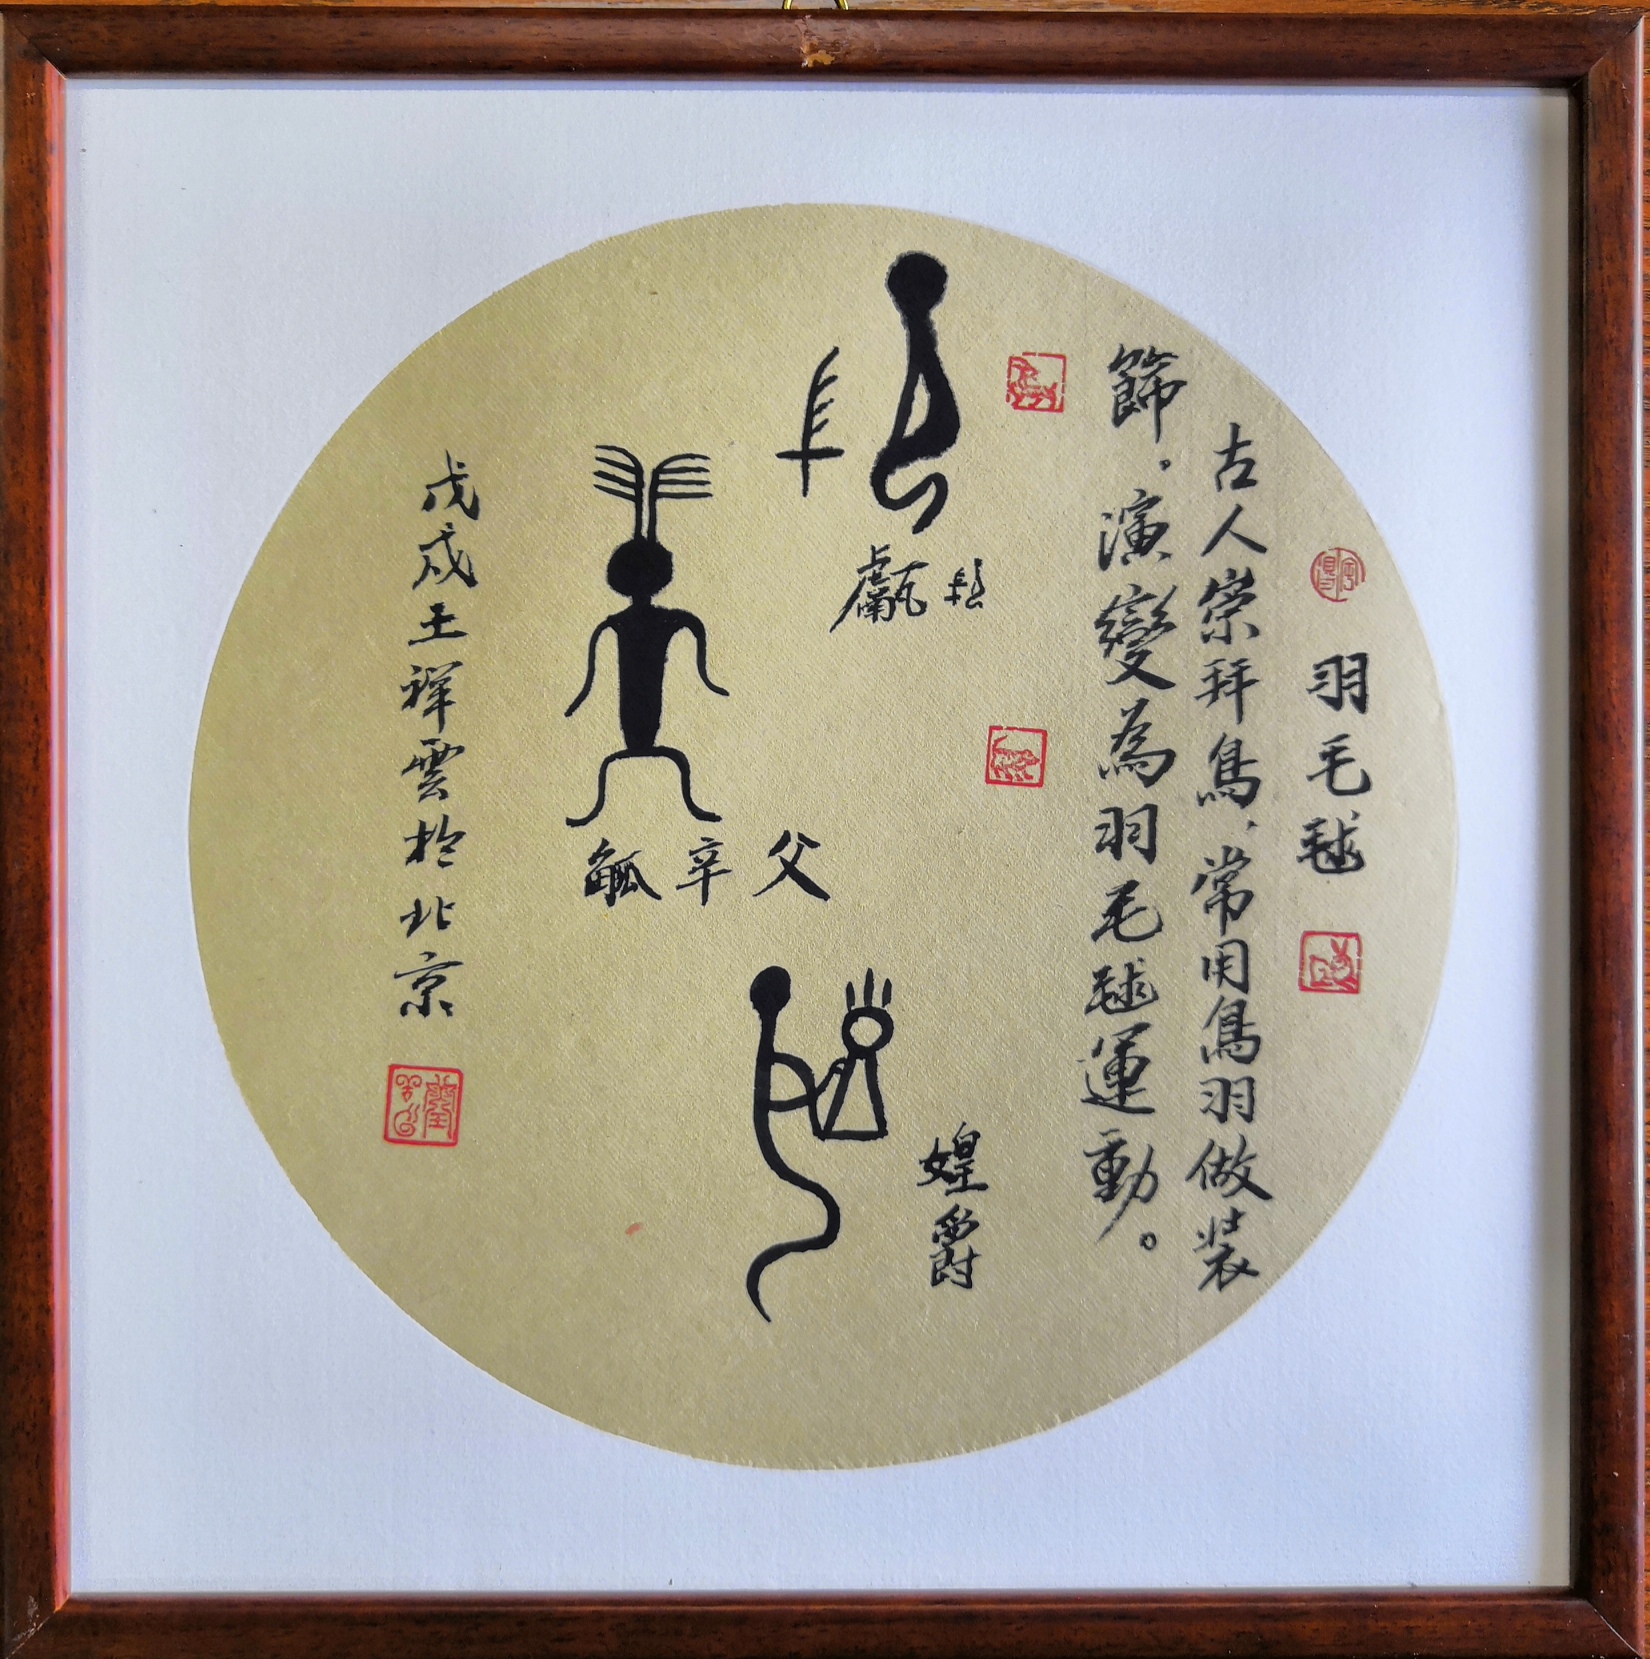 羽毛毬
古人崇拜鳥，常用鳥羽做装
飾，演變為羽毛毬運動。
甗
父辛觚
媓爵
戊戌王祥雲於北京